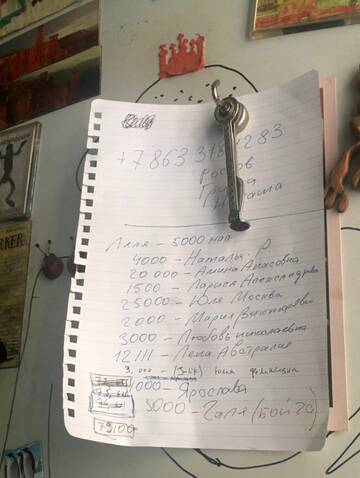 +7 863 318 283
Ростов
Наташа
Лиля - 5000 нал
4000 - Наталья Р
20 000 - Алина Анасовна
1500 - Лариса Александровна
25000 - Юля Москва
2000 - Мария Викторовна
3000 - Любовь Николаевна
12111 - Лена Австралия
3.000 -
1000 - Ярослава
5000 - Галя (Бойко)
79100